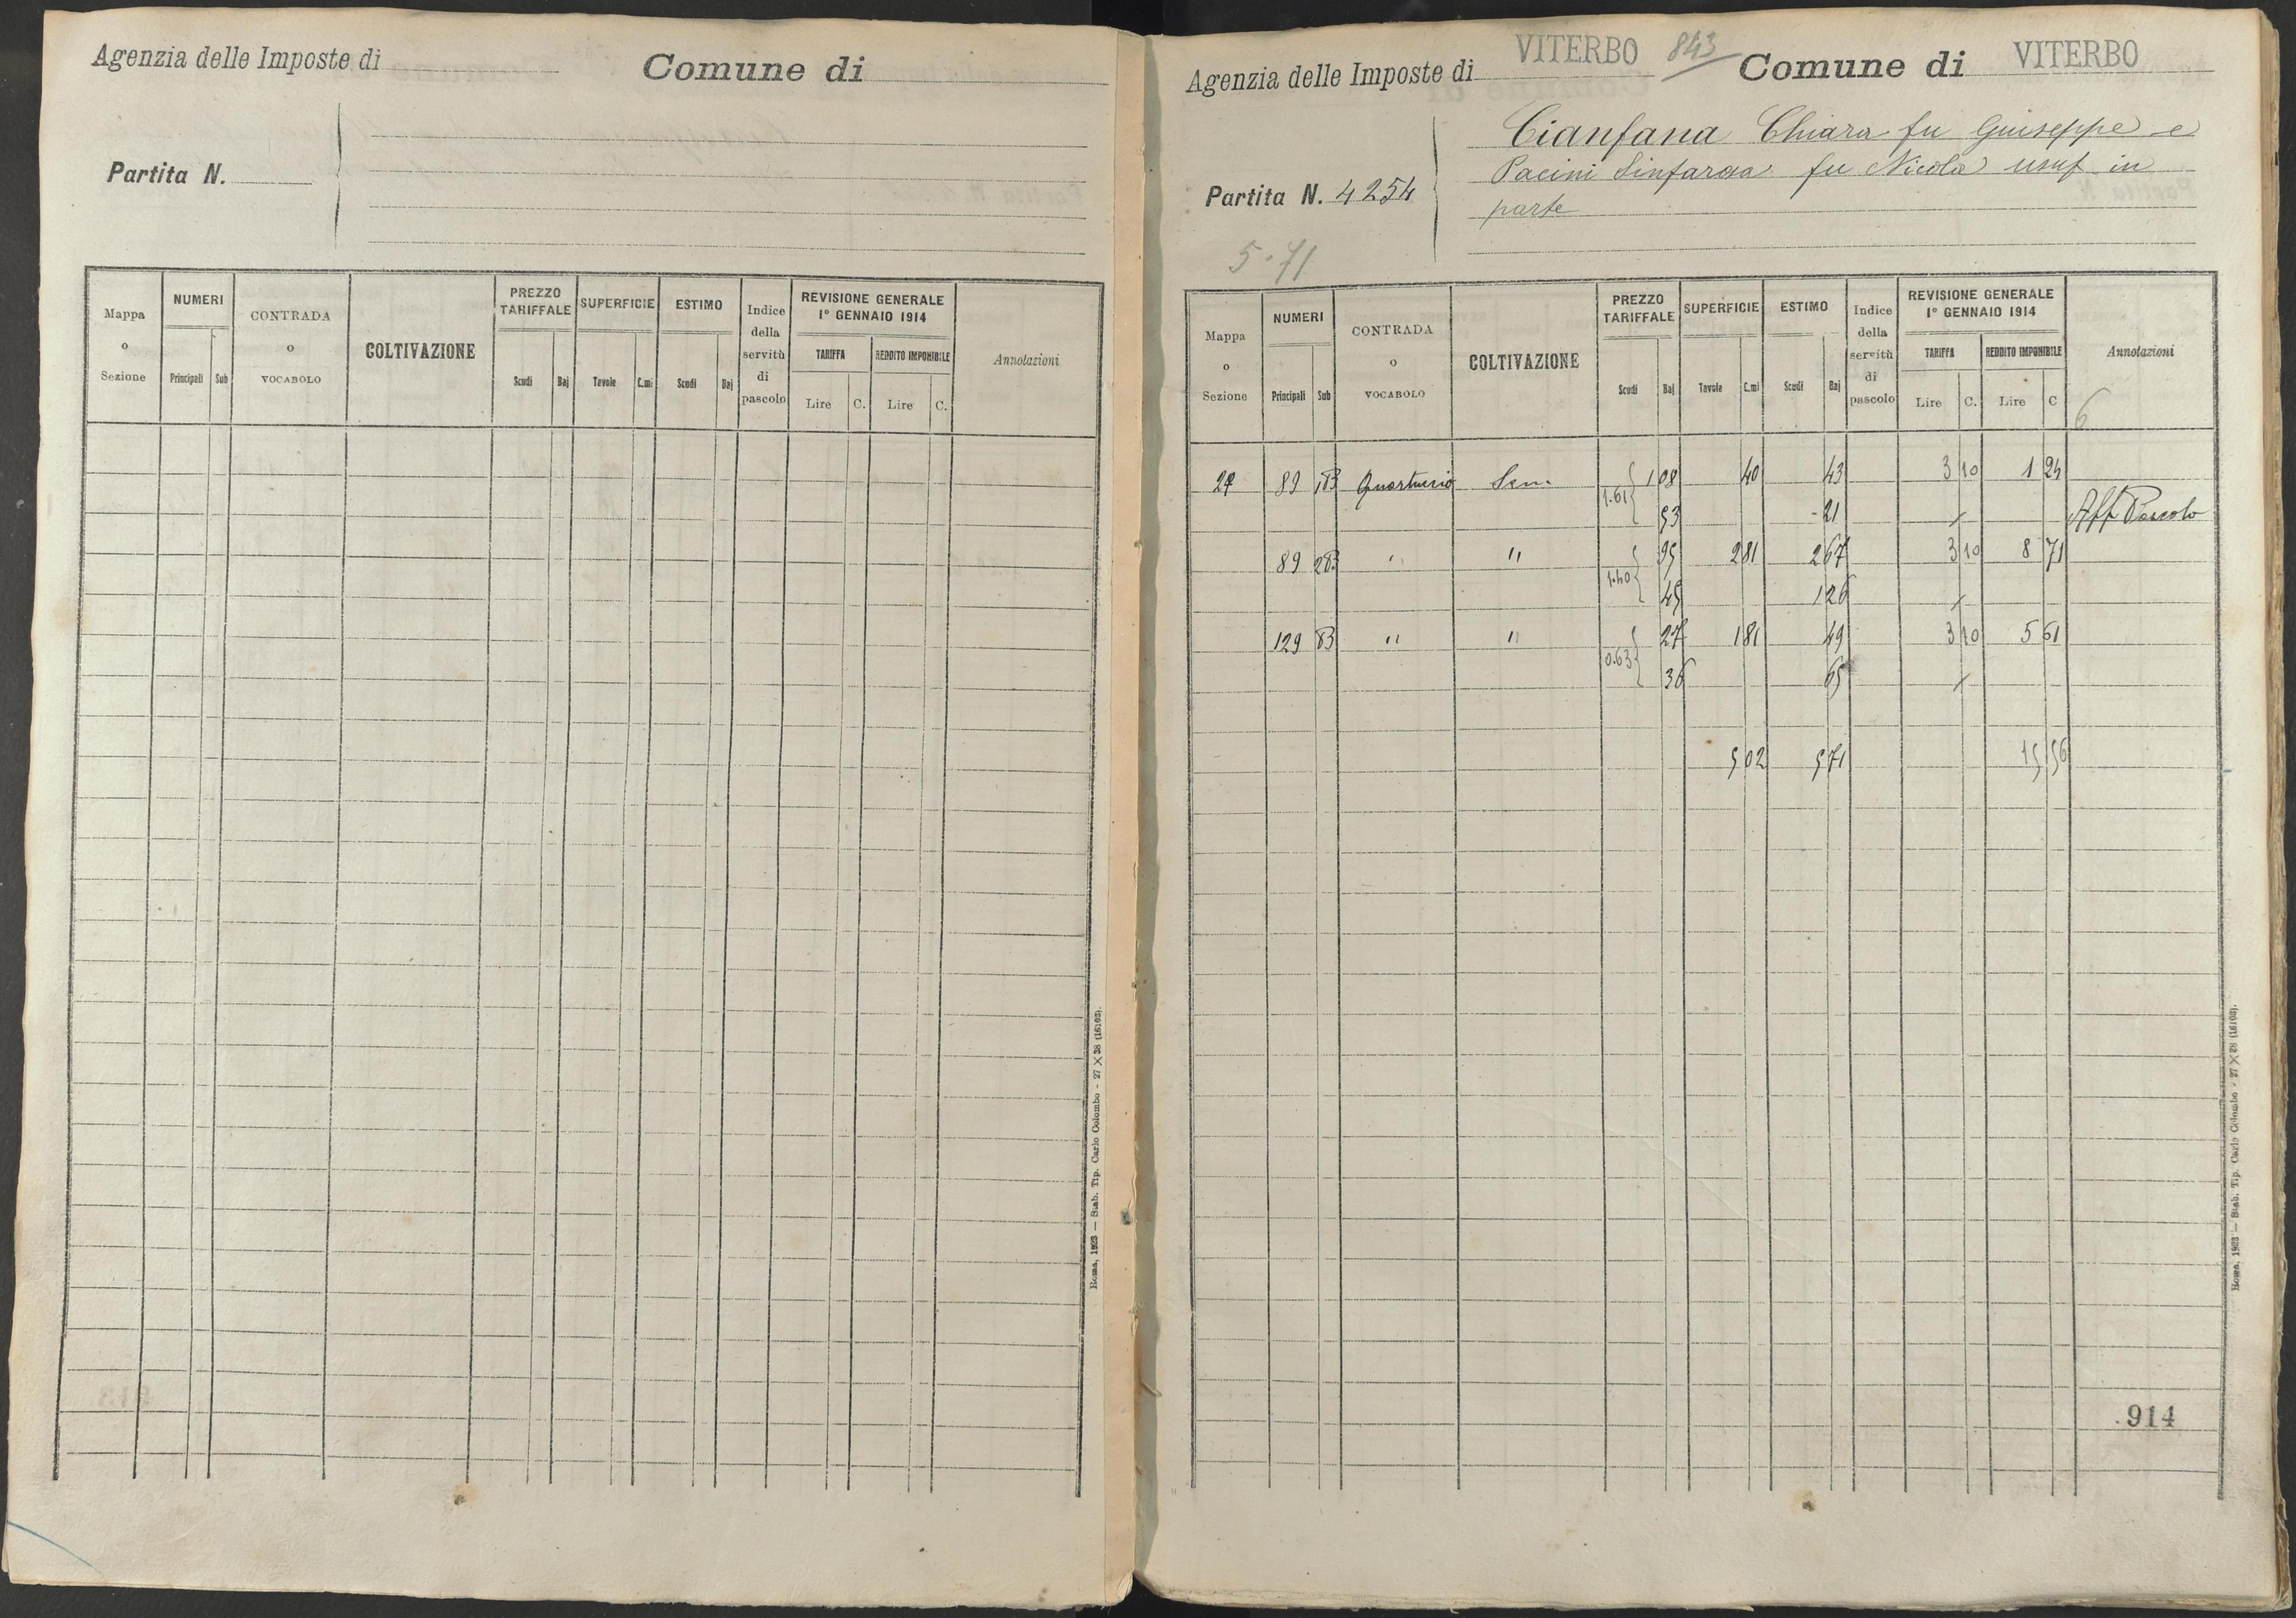 Agenzia delle Imposte di
Comune di
Partita N.
Mappa o Sezione
NUMERI
Principali Sub
CONTRADA o VOCABOLO
COLTIVAZIONE
PREZZO TARIFFALE
Scudi Baj
SUPERFICIE
Tavole C.mi
ESTIMO
Scudi Baj
Indice della servitù di pascolo
REVISIONE GENERALE
1° GENNAIO 1914
TARIFFA
Lire C.
REDDITO IMPONIBILE
Lire C.
Annotazioni
Roma, 1923 — Stab. Tip. Carlo Colombo - 27 X 38 (16103).
Agenzia delle Imposte di VITERBO 843 Comune di VITERBO
Cianfana Chiara fu Giuseppe e
Pacini Sinfarosa fu Nicola usuf in
parte
Partita N. 4254
5.71
Mappa o Sezione
NUMERI
Principali Sub
CONTRADA o VOCABOLO
COLTIVAZIONE
PREZZO TARIFFALE
Scudi Baj
SUPERFICIE
Tavole C.mi
ESTIMO
Scudi Baj
Indice della servitù di pascolo
REVISIONE GENERALE
1° GENNAIO 1914
TARIFFA
Lire C.
REDDITO IMPONIBILE
Lire C
Annotazioni
6
89 Sem. 1.61 { 1 08 40 43 3 10 1 24
53 -21 Aff Pascolo
89 " 1.40 { 95 2 81 2 67 3 10 8 71
45 1 26
129 " " 0.63 { 27 1 81 49 3 10 5 61
36 65
5 02 5 71 15 56
914
Roma, 1923 — Stab. Tip. Carlo Colombo - 27 X 38 (16103).